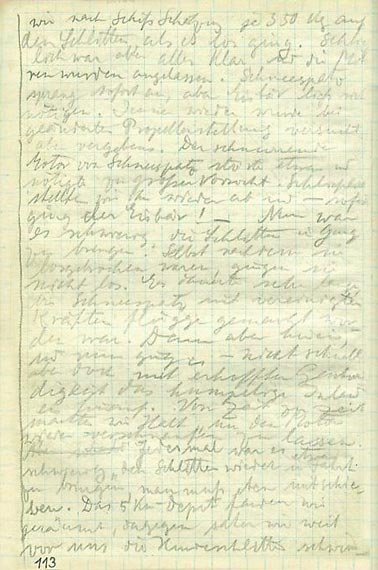 wir nach Schiff Schätzung je 350 kg auf
den Schlitten als es los ging. Schließ-
lich war aber alles klar und die Moto-
ren wurden angelassen. Schneespatz
sprang sofort an, aber Eisbär ließ sich
nötigen. Immer wieder wurde bei
geänderter Propellerstellung versucht
aber vergebens. Der schnurrende
Motor von Schneespatz störte etwas und
nötigte zu großer Vorsicht. Schließlich
stellte ihn wieder ab und – sofort
ging der Eisbär! — Nun war
es schwierig die Schlitten in Gang
zu bringen. Selbst nachdem sie
losgebrochen waren, gingen sie
nicht los. Es dauerte sehr lange
bis Schneespatz mit vereinigten
Kräften flügge gemacht wor-
den war. Dann aber
und nun ging es – nicht schnell
aber doch mit erhoffter Geschwin-
digkeit das Inland-
eis hinauf. Von Zeit zu Zeit
machten wir Halt, um den Motor
zu lassen.
jedesmal war es etwas
schwierig, den Schlitten wieder in Fahrt
zu bringen, man muß eben mitschie-
ben. Das 5 km Depot fanden wir
geräumt, dagegen sahen wir weit
vor uns die Hundeschlitten schwin-
113